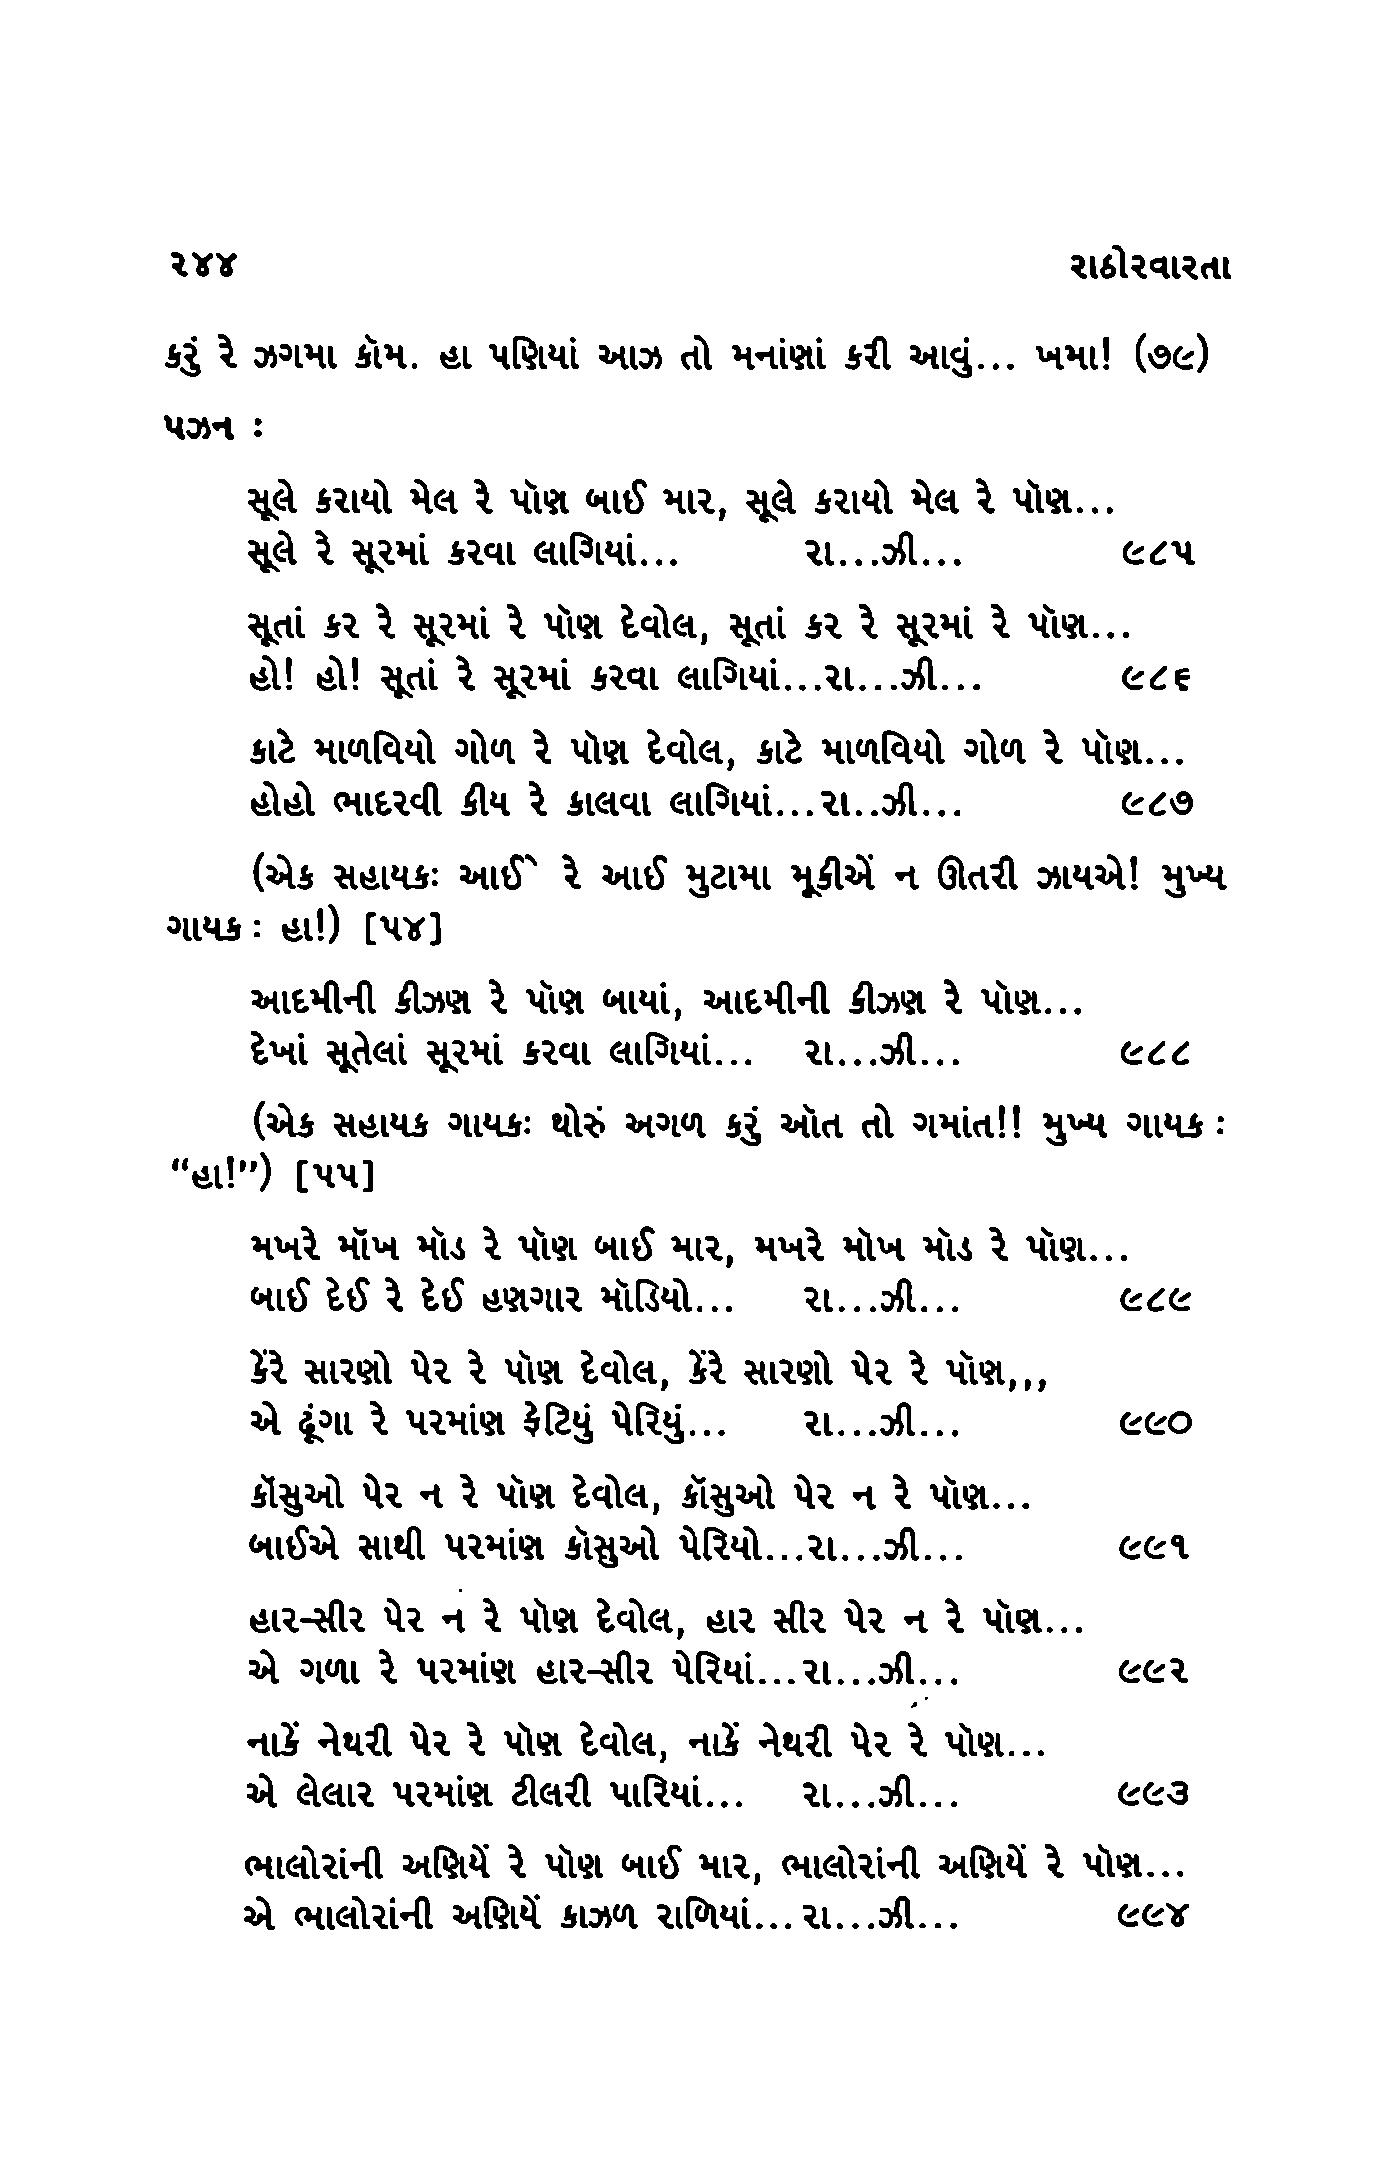 ૨૪૪ રાઠોરવારતા
કરું રે ઝગમા કૉમ. હા પણિયાં આઝ તો મનાંણાં કરી આવું... ખમા! (૭૯)
પઝન :
સૂલે કરાયો મેલ રે પૉણ બાઈ માર, સૂલે કરાયો મેલ રે પૉણ...
સૂલે રે સૂરમાં કરવા લાગિયાં... રા...ઝી... ૯૮૫
સૂતાં કર રે સૂરમાં રે પૉણ દેવોલ, સૂતાં કર રે સૂરમાં રે પૉણ...
હો! હો! સૂતાં રે સૂરમાં કરવા લાગિયાં...રા...ઝી... ૯૮૬
કાટે માળવિયો ગોળ રે પૉણ દેવોલ, કાટે માળવિયો ગોળ રે પૉણ...
હોહો ભાદરવી કીય રે કાલવા લાગિયાં...રા..ઝી... ૯૮૭
(એક સહાયકઃ આઈ`રે આઈ મુટામા મૂકીએં ન ઊતરી ઝાયએ! મુખ્ય
ગાયક : હા!) [૫૪]
આદમીની કીઝણ રે પૉણ બાયાં, આદમીની કીઝણ રે પૉણ...
દેખાં સૂતેલાં સૂરમાં કરવા લાગિયાં... રા...ઝી... ૯૮૮
(એક સહાયક ગાયકઃ થોરું અગળ કરું ઑત તો ગમાંત!! મુખ્ય ગાયક :
“હા!”) [૫૫]
મખરે મૉખ મૉડ રે પૉણ બાઈ માર, મખરે મૉખ મૉડ રે પૉણ...
બાઈ દેઈ રે દેઈ હણગાર મૉડિયો... રા...ઝી... ૯૮૯
કેંરે સારણો પેર રે પૉણ દેવોલ, કેંરે સારણો પેર રે પૉણ,,,
એ ઢૂંગા રે પરમાંણ ફેટિયું પેરિયું... રા...ઝી... ૯૯૦
કૉસુઓ પેર ન રે પૉણ દેવોલ, કૉસુઓ પેર ન રે પૉણ...
બાઈએ સાથી પરમાંણ કૉસુઓ પેરિયો...રા...ઝી... ૯૯૧
હાર-સીર પેર ન રે પૉણ દેવોલ, હાર સીર પેર ન રે પૉણ...
એ ગળા રે પરમાંણ હાર-સીર પેરિયાં...રા...ઝી... ૯૯૨
નાકેં નેથરી પેર રે પૉણ દેવોલ, નાકેં નેથરી પેર રે પૉણ...
એ લેલાર પરમાંણ ટીલરી પારિયાં... રા...ઝી... ૯૯૩
ભાલોરાંની અણિયેં રે પૉણ બાઈ માર, ભાલોરાંની અણિયેં રે પૉણ...
એ ભાલોરાંની અણિયેં કાઝળ રાળિયાં...રા...ઝી... ૯૯૪